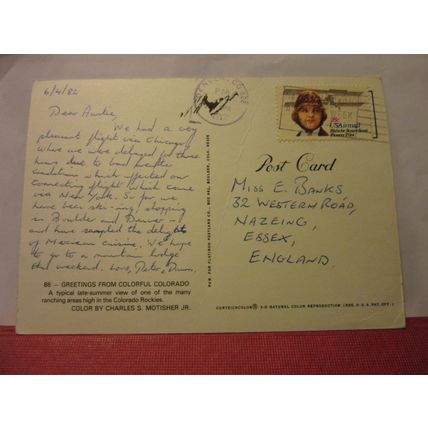 6/4/82
Dear Auntie,
We had a very
pleasant flight via Chicago
where we were delayed for three
hours due to bad weather
conditions which affected our
connecting flight which came
via New York. So far, we
have been ski-ing, shopping
in Boulder and Denver –
and have sampled the delights
of Mexican cuisine. We hope
to go to a mountain lodge
this weekend. Love, Peter,
86 – GREETINGS FROM COLORFUL COLORADO
A typical late-summer view of one of the many
ranching areas high in the Colorado Rockies.
COLOR BY CHARLES S. MOTISHER JR.
PUB. FOR FLATIRON POSTCARD CO., BOX BOULDER, COLO.
DENVER, CO
PM
USAirmail
Blanche Stuart Scott
Pioneer Pilot
Post Card
MISS E. BANKS
32 WESTERN ROAD,
NAZEING,
ESSEX,
ENGLAND.
CURTEICHCOLOR® 3-D NATURAL COLOR REPRODUCTION (REG. U.S.A. PAT. OFF.)